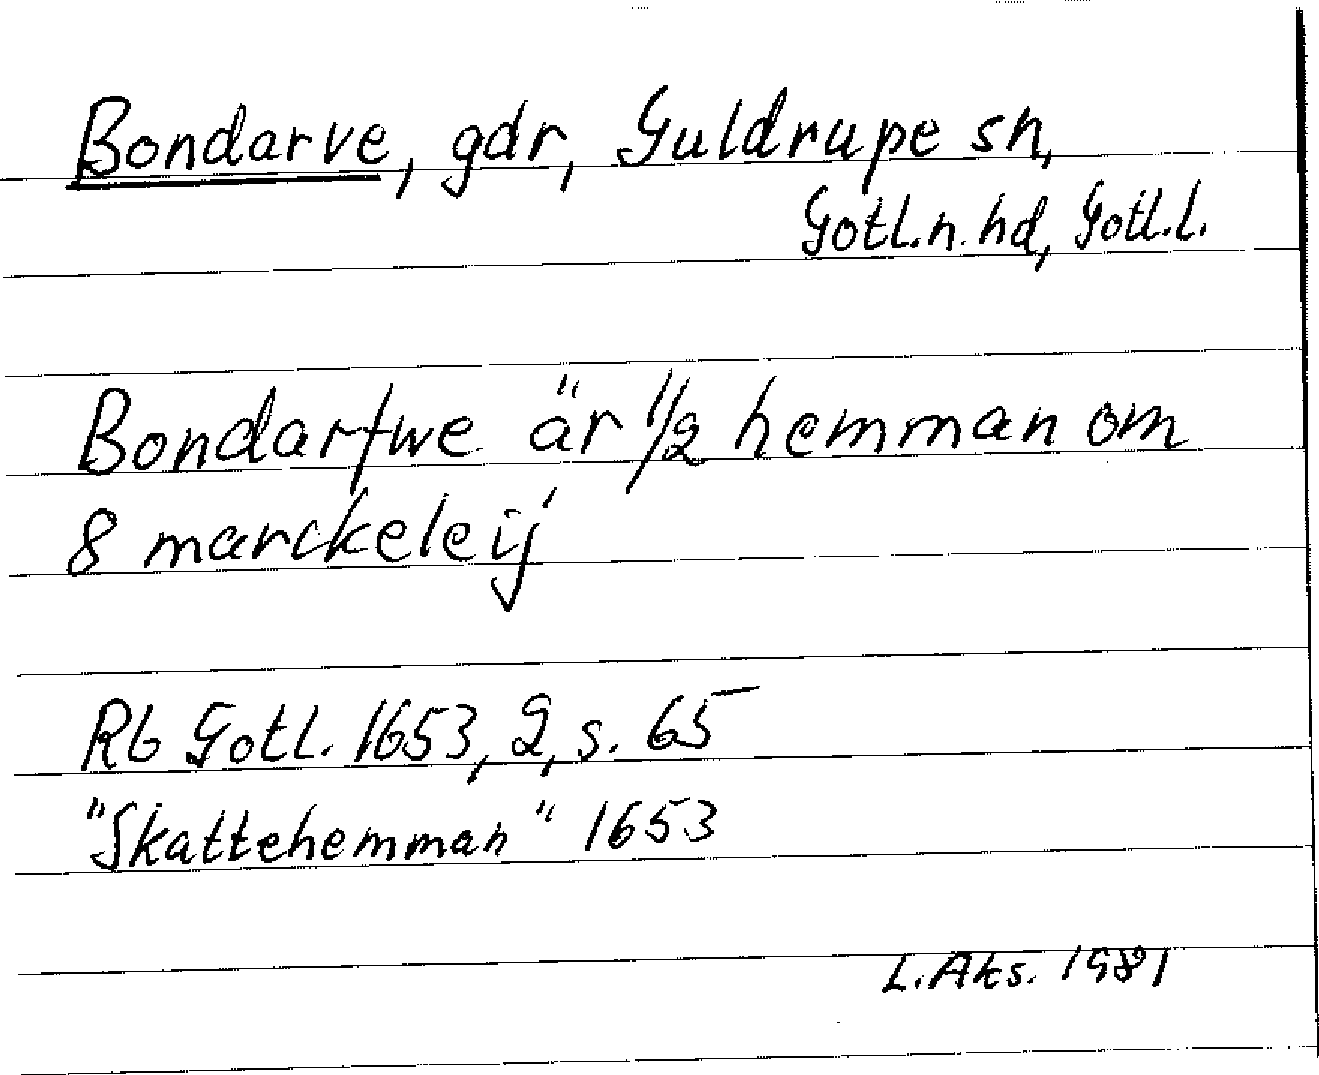 Bondarve, gdr, Guldrupe sn,
Gotl.n.hd, Gotl.l.
Bondarfwe är 1/2 hemman om
8 marckeleij
Rb Gotl. 1653, 2, s. 65
"Skattehemman" 1653
L.Aks. 1981